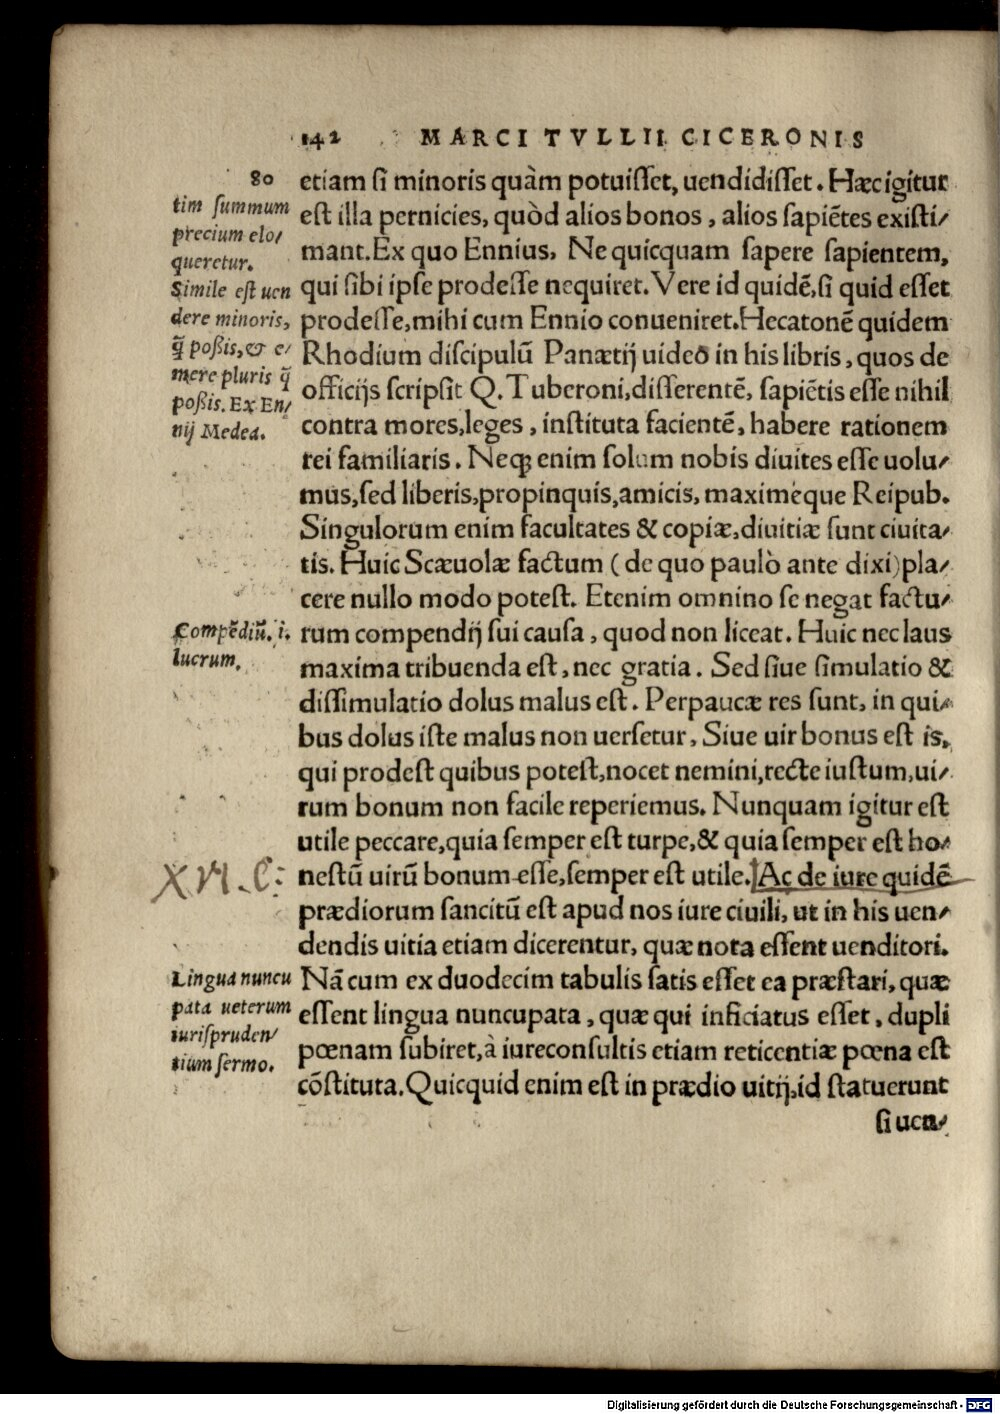 142 MARCI TVLLII CICERONIS
80
tim summum
precium elo/
queretur.
Simile est uen
dere minoris,
q̃ poßis, & e/
mere pluris q̃
poßis. Ex En/
nij Medea.
Compẽdiũ. i.
lucrum.
XVI. C:
Lingua nuncu
pata ueterum
iurispruden/
tium sermo.
etiam si minoris quàm potuisset, uendidisset. Hæc igitur
est illa pernicies, quòd alios bonos, alios sapiẽtes existi/
mant. Ex quo Ennius, Ne quicquam sapere sapientem,
qui sibi ipse prodesse nequiret. Vere id quidẽ, si quid esset
prodesse, mihi cum Ennio conueniret. Hecatonẽ quidem
Rhodium discipulũ Panætij uideo in his libris, quos de
officijs scripsit Q. Tuberoni, disserentẽ, sapiẽtis esse nihil
contra mores, leges, instituta facientẽ, habere rationem
rei familiaris. Neq; enim solum nobis diuites esse uolu/
mus, sed liberis, propinquis, amicis, maximéque Reipub.
Singulorum enim facultates & copiæ, diuitiæ sunt ciuita/
tis. Huic Scæuolæ factum (de quo paulò ante dixi) pla/
cere nullo modo potest. Etenim omnino se negat factu/
rum compendij sui causa, quod non liceat. Huic nec laus
maxima tribuenda est, nec gratia. Sed siue simulatio &
dissimulatio dolus malus est. Perpaucæ res sunt, in qui/
bus dolus iste malus non uersetur, Siue uir bonus est is,
qui prodest quibus potest, nocet nemini, recte iustum, ui/
rum bonum non facile reperiemus. Nunquam igitur est
utile peccare, quia semper est turpe, & quia semper est ho/
nestũ uirũ bonum esse, semper est utile. Ac de iure quidẽ
prædiorum sancitũ est apud nos iure ciuili, ut in his uen/
dendis uitia etiam dicerentur, quæ nota essent uenditori.
Nã cum ex duodecim tabulis satis esset ea præstari, quæ
essent lingua nuncupata, quæ qui inficiatus esset, dupli
pœnam subiret, à iureconsultis etiam reticentiæ pœna est
cõstituta. Quicquid enim est in prædio uitij, id statuerunt
si uen/
Digitalisierung gefördert durch die Deutsche Forschungsgemeinschaft - DFG